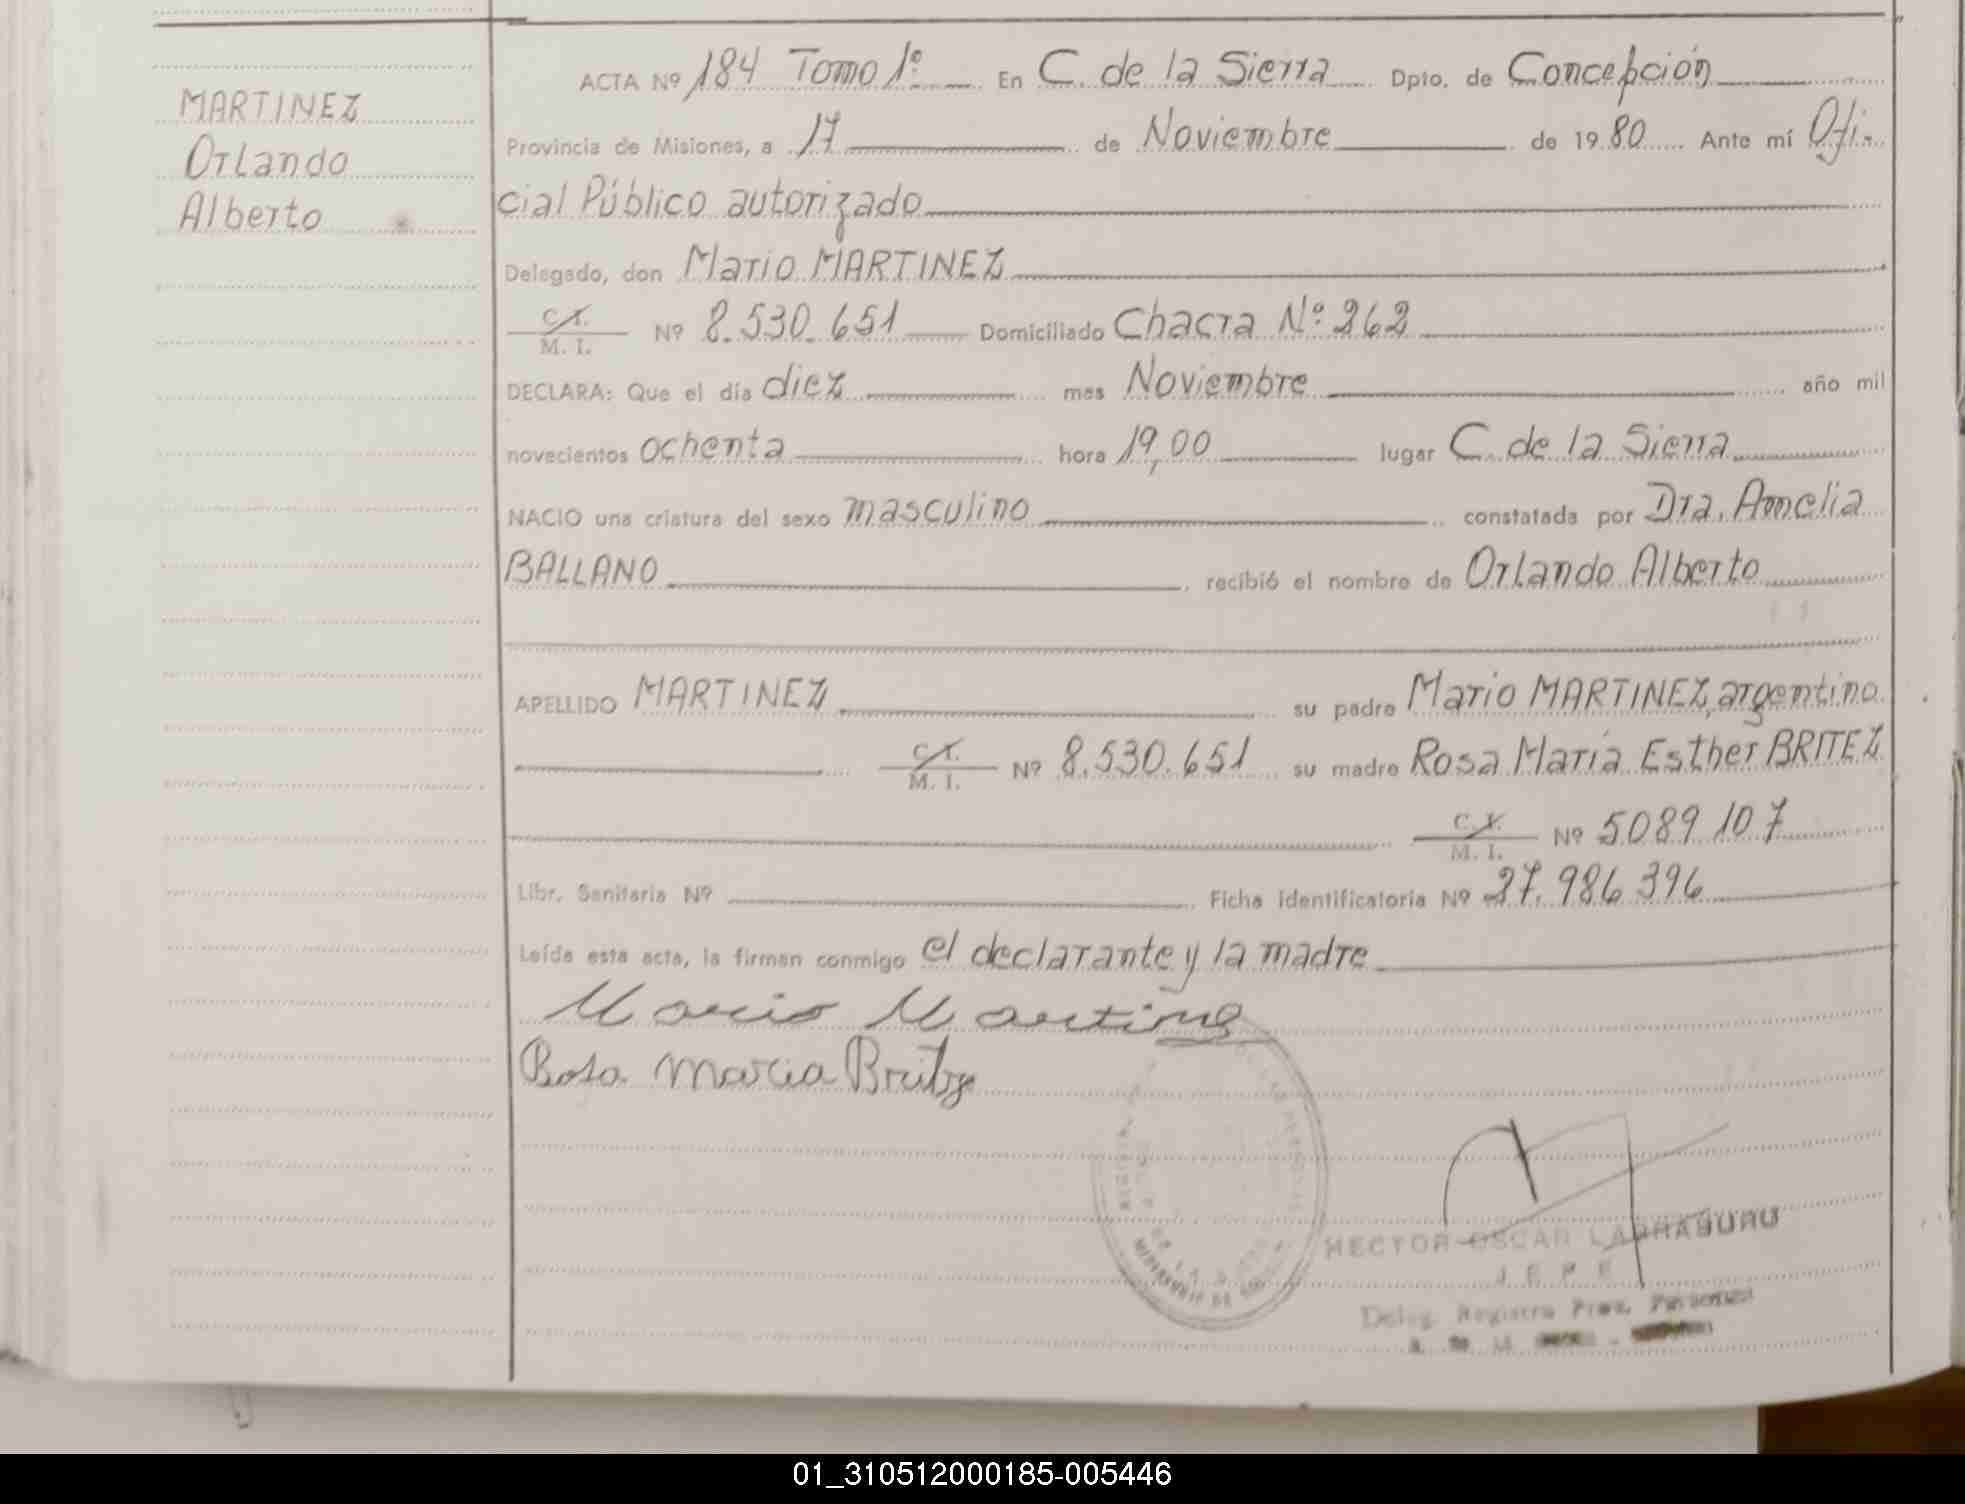 MARTINEZ
Orlando
Alberto
ACTA Nº 184 Tomo 1º En C. de la Sierra Dpto. de Concepción
Provincia de Misiones, a 17 de Noviembre de 1980 Ante mí Ofi-
cial Público autorizado
Delegado, don Mario MARTINEZ
C. I. / M. I. Nº 8.530.651 Domiciliado Chacra Nº 262
DECLARA: Que el día diez mes Noviembre año mil
novecientos ochenta hora 19,00 lugar C. de la Sierra
NACIO una criatura del sexo masculino constatada por Dra. Amelia
BALLANO recibió el nombre de Orlando Alberto
APELLIDO MARTINEZ su padre Mario MARTINEZ, argentino
C. I. / M. I. Nº 8.530.651 su madre Rosa María Esther BRITEZ
C. I. / M. I. Nº 5089107
Libr. Sanitaria Nº Ficha identificatoria Nº 27.986396
Leída esta acta, la firman conmigo el declarante y la madre
Mario Martinez
Rosa Maria Britez
HECTOR OSCAR LARRABURU
JEFE
Deleg. Registro Prov. Personas
01_310512000185-005446